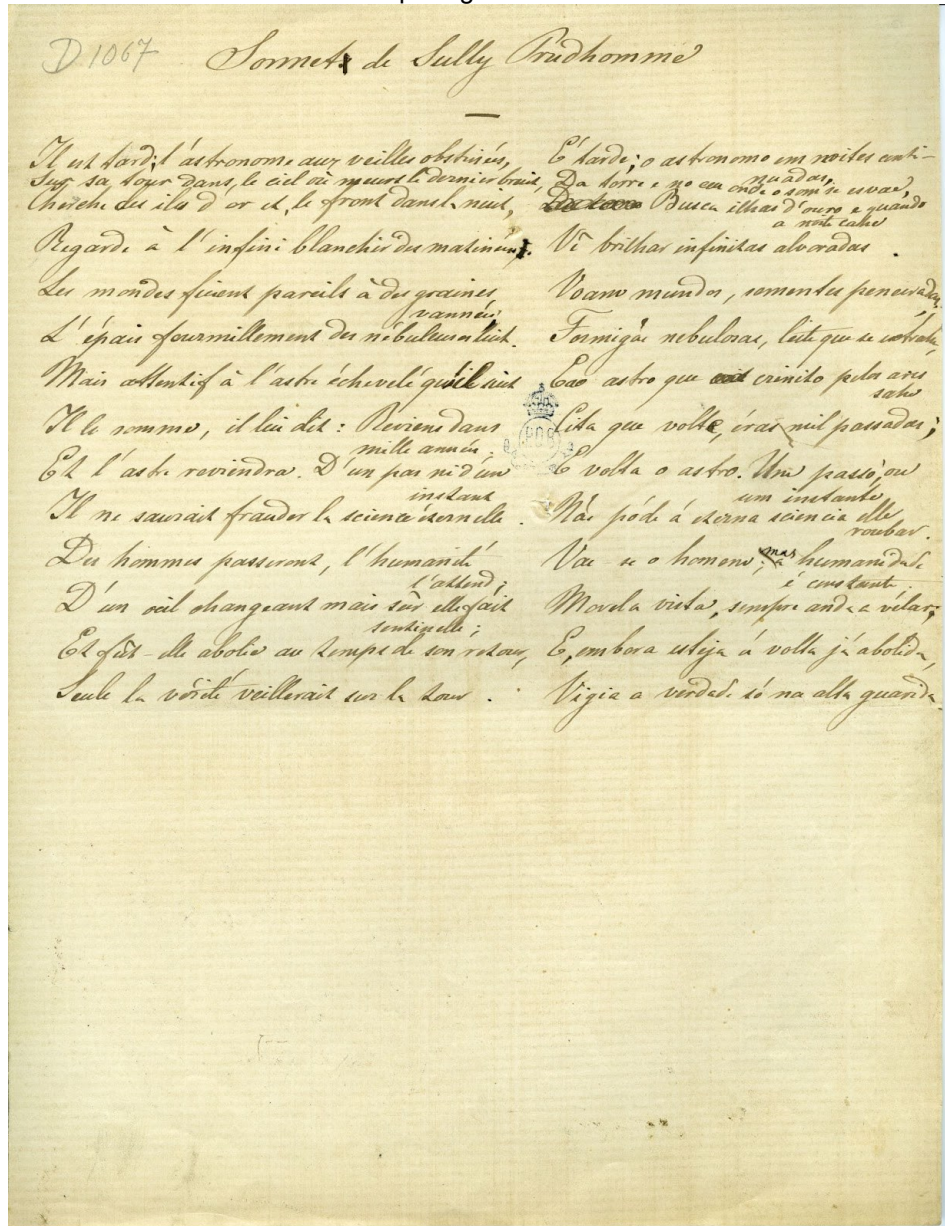 D. 1067
Sonnet de Sully Prudhomme
Il est tard; l'astronome aux veilles obstinées,
Sur sa tour dans, le ciel où meurt le dernier bruit,
Cherche des iles d'or et, le front dans la nuit,
Regarde à l'infini blanchir des matinées.
Les mondes fuient pareils à des graines
vannées
L'épais fourmillement des nébuleuses luit.
Mais attentif à l'astre échevelé qu'il suit
Il le somme, il lui dit: Reviens dans
mille années,
Et l'astre reviendra. D'un pas ni d'un
instant
Il ne saurait frauder la science éternelle.
Des hommes passeront, l'humanité
l'attend;
D'un œil changeant mais sûr elle fait
sentinelle;
Et fût-elle abolie au temps de son retour,
Seule la vérité veillerait sur la tour.
É tarde; o astronomo em noites conti-
nuadas,
Da torre e no ceu onde o som se esvae,
Busca ilhas d'ouro e quando
a noite cahe
Vê brilhar infinitas alvoradas
Voam mundos, sementes peneiradas,
Formigão nebulosas, leite que se extrahe,
E ao astro que crinito pelos ares
sahe
Cita que volte, éras mil passadas;
E volta o astro. Um passo, ou
um instante
Não póde á eterna sciencia elle
roubar.
Vae-se o homem; mas a humanidade
é constante.
Movel a vista, sempre anda a vélar;
E, embora esteja á volta já abolida,
Vigia a verdade só na alta guarida.
P.O.B.